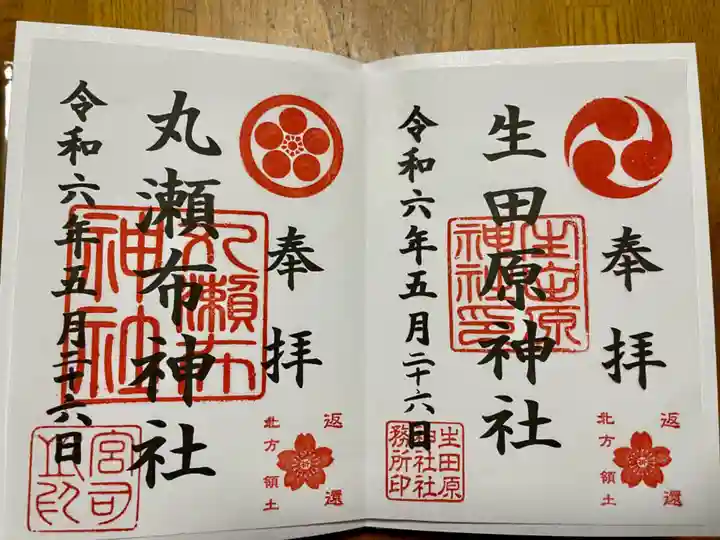 奉拝
生田原神社
令和六年五月二十六日
生田原
神社印
生田原
神社社
務所印
返還
北方領土
奉拝
丸瀬布神社
令和六年五月二十六日
丸瀬布
神社
宮司
之印
返還
北方領土